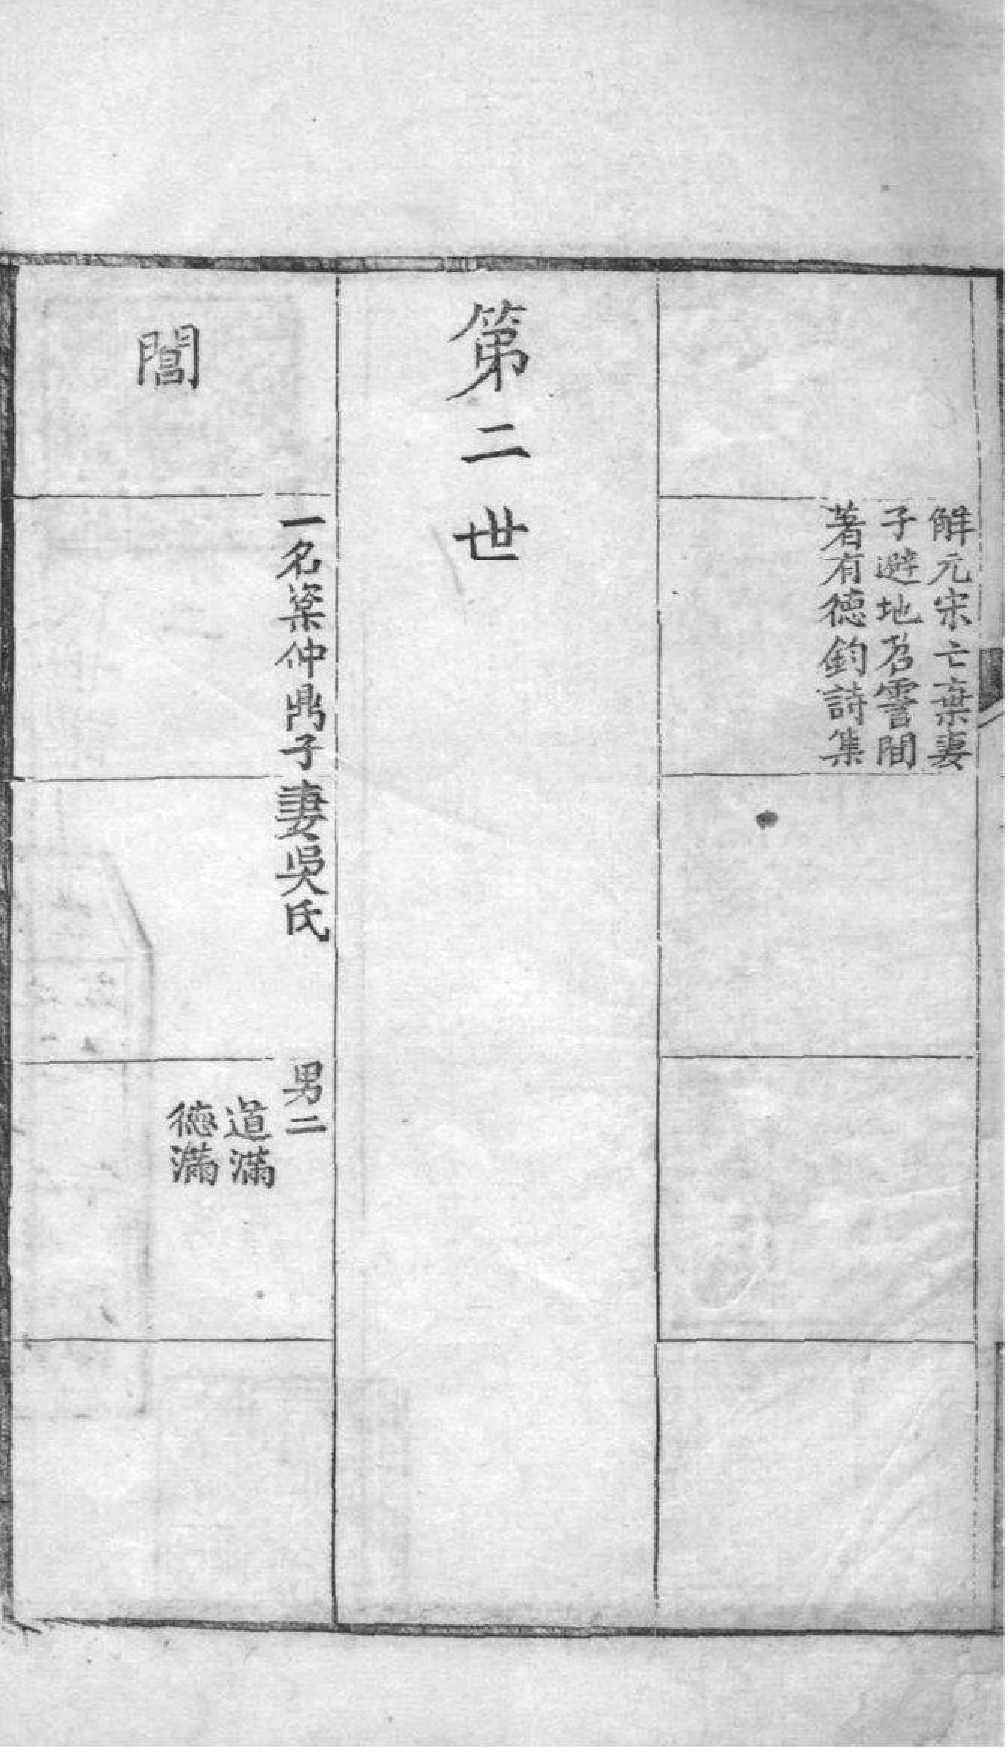 觧元宋亡棄妻
子避地苕霅間
著有徳鈞詩集
第二世
一名仲鼎子妻吳氏
男二
道滿
徳滿